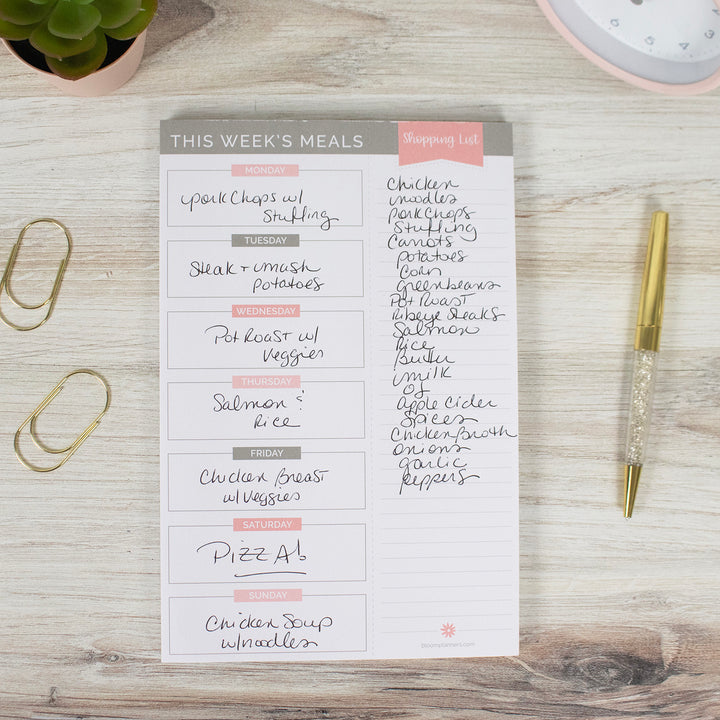 THIS WEEK'S MEALS
MONDAY
pork Chops w/
Stuffing
TUESDAY
Steak + mash
potatoes
WEDNESDAY
Pot Roast w/
Veggies
THURSDAY
Salmon &
Rice
FRIDAY
Chicken Breast
w/ Veggies
SATURDAY
PIZZA!
SUNDAY
Chicken Soup
w/ noodles
Shopping List
Chicken
noodles
porkChops
Stuffing
Carrots
potatoes
Corn
greenbeans
Pot Roast
Ribeye Steaks
Salmon
Rice
Butter
milk
OJ
Apple Cider
Spices
Chicken Broth
onions
garlic
peppers
bloomplanners.com
3
4
5
6